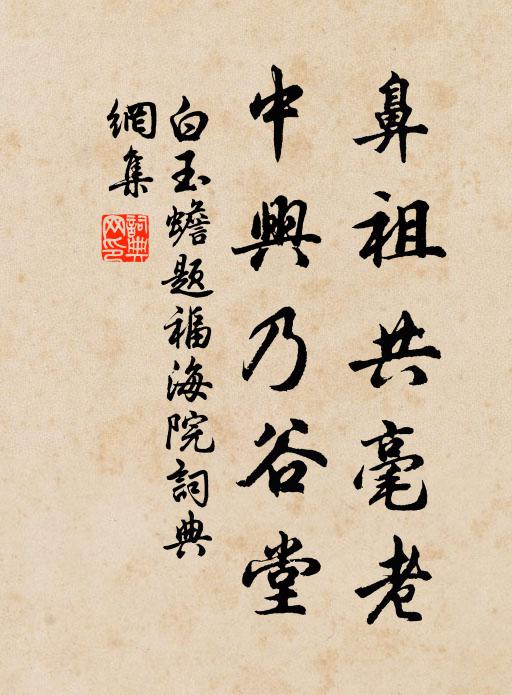 鼻祖共毫老
中興乃谷堂
白玉蟾题福海院詞典
網集
詞典
网印